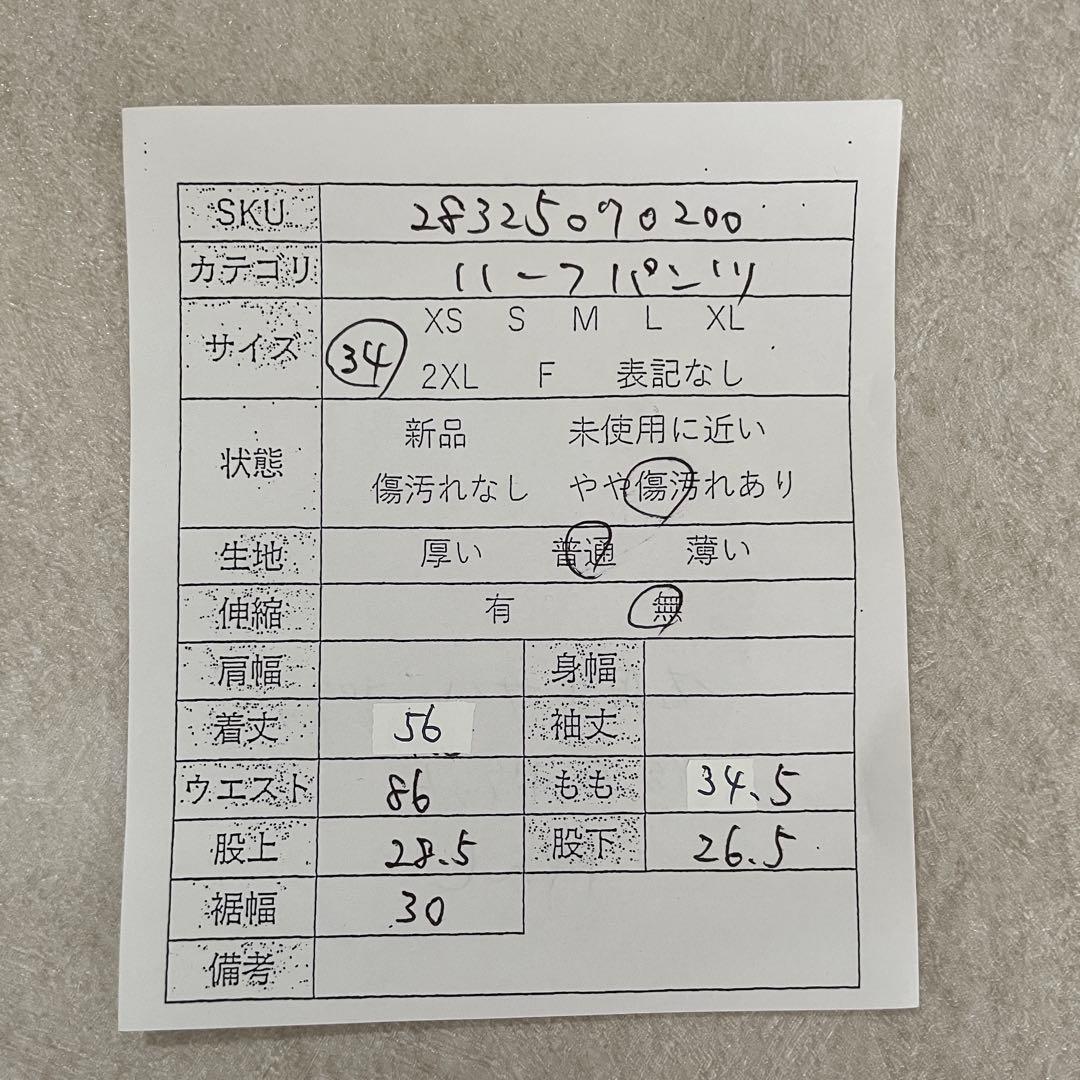 SKU 28325090200
カテゴリ ハーフパンツ
サイズ 34 XS S M L XL
2XL F 表記なし
状態 新品 未使用に近い
傷汚れなし やや傷汚れあり
生地 厚い 普通 薄い
伸縮 有 無
肩幅 身幅
着丈 56 袖丈
ウエスト 86 もも 34.5
股上 28.5 股下 26.5
裾幅 30
備考